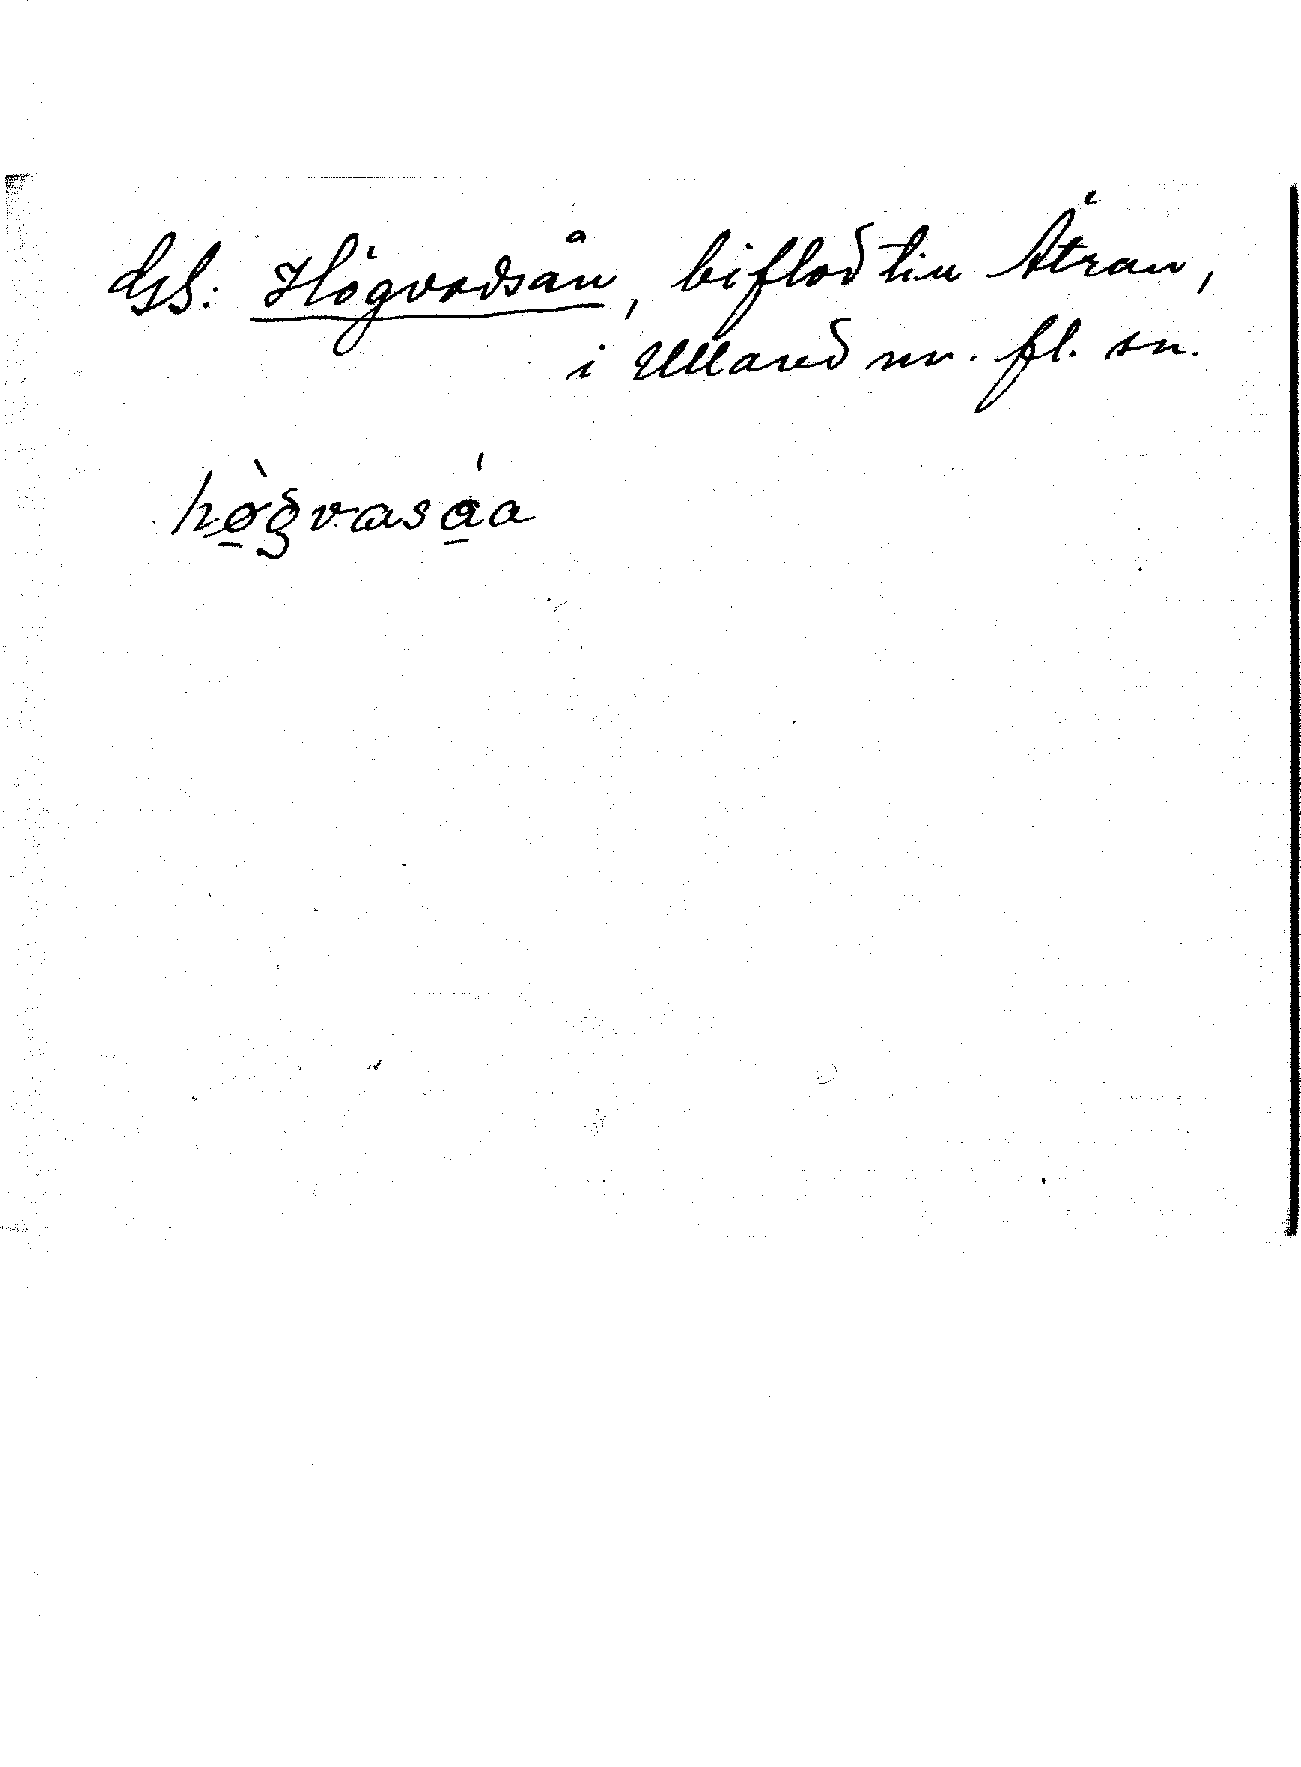 GS: Högvadsån, biflod till Ätran,
i Ullared m. fl. sn.
hø̀gvasáa